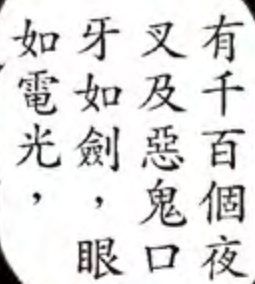 有千百個夜
叉及惡鬼口
牙如劍，眼
如電光，